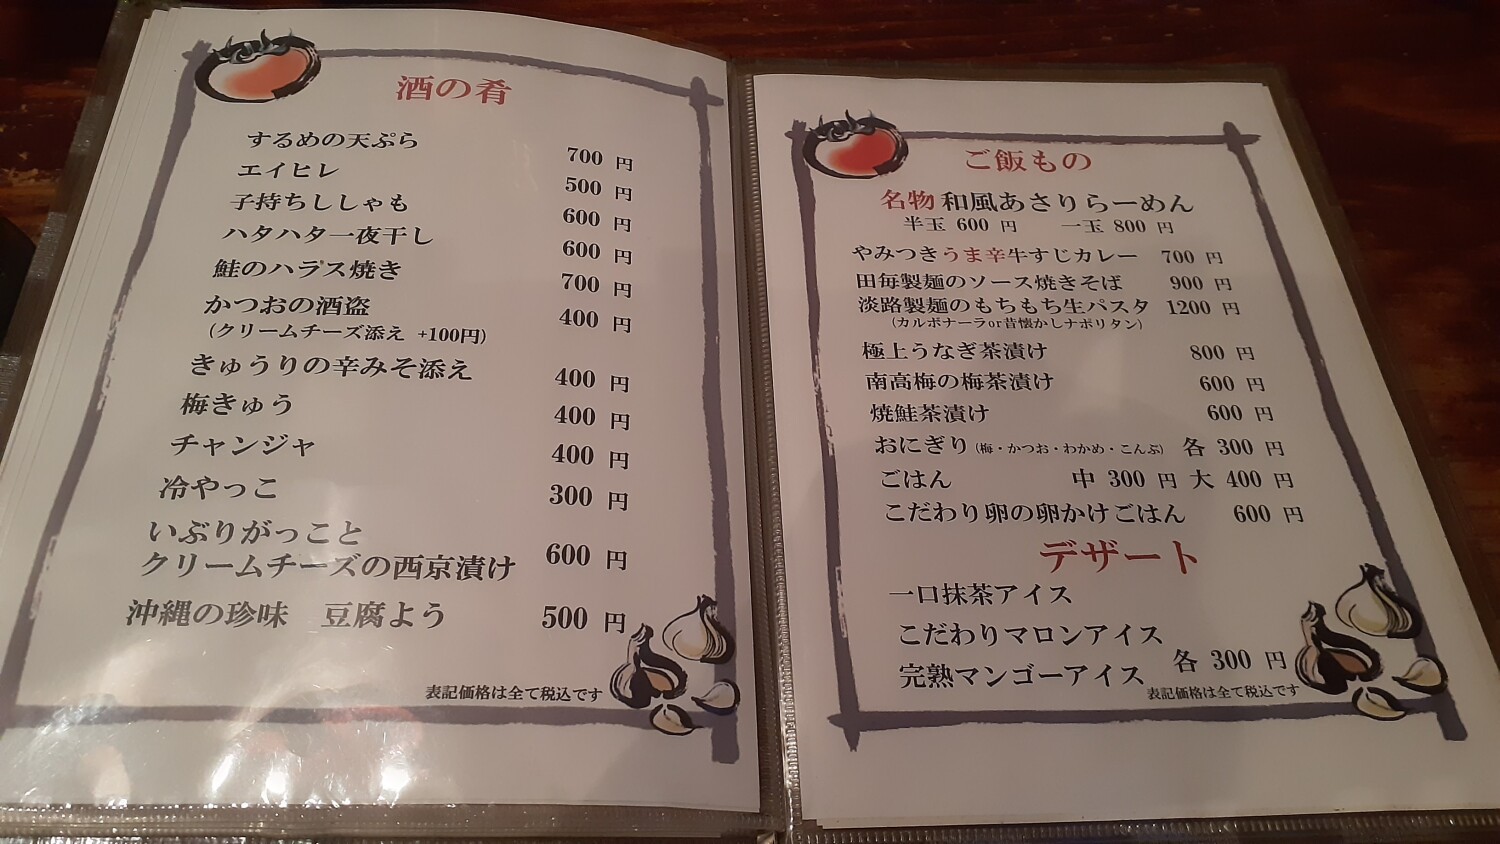 酒の肴
するめの天ぷら 700 円
エイヒレ 500 円
子持ちししゃも 600 円
ハタハタ一夜干し 600 円
鮭のハラス焼き 700 円
かつおの酒盗 400 円
(クリームチーズ添え +100円)
きゅうりの辛みそ添え 400 円
梅きゅう 400 円
チャンジャ 400 円
冷やっこ 300 円
いぶりがっこと
クリームチーズの西京漬け 600 円
沖縄の珍味 豆腐よう 500 円
表記価格は全て税込です
ご飯もの
名物 和風あさりらーめん
半玉 600 円 一玉 800 円
やみつきうま辛牛すじカレー 700 円
田毎製麺のソース焼きそば 900 円
淡路製麺のもちもち生パスタ 1200 円
(カルボナーラor昔懐かしナポリタン)
極上うなぎ茶漬け 800 円
南高梅の梅茶漬け 600 円
焼鮭茶漬け 600 円
おにぎり(梅・かつお・わかめ・こんぶ) 各 300 円
ごはん 中 300 円 大 400 円
こだわり卵の卵かけごはん 600 円
デザート
一口抹茶アイス
こだわりマロンアイス
完熟マンゴーアイス 各 300 円
表記価格は全て税込です